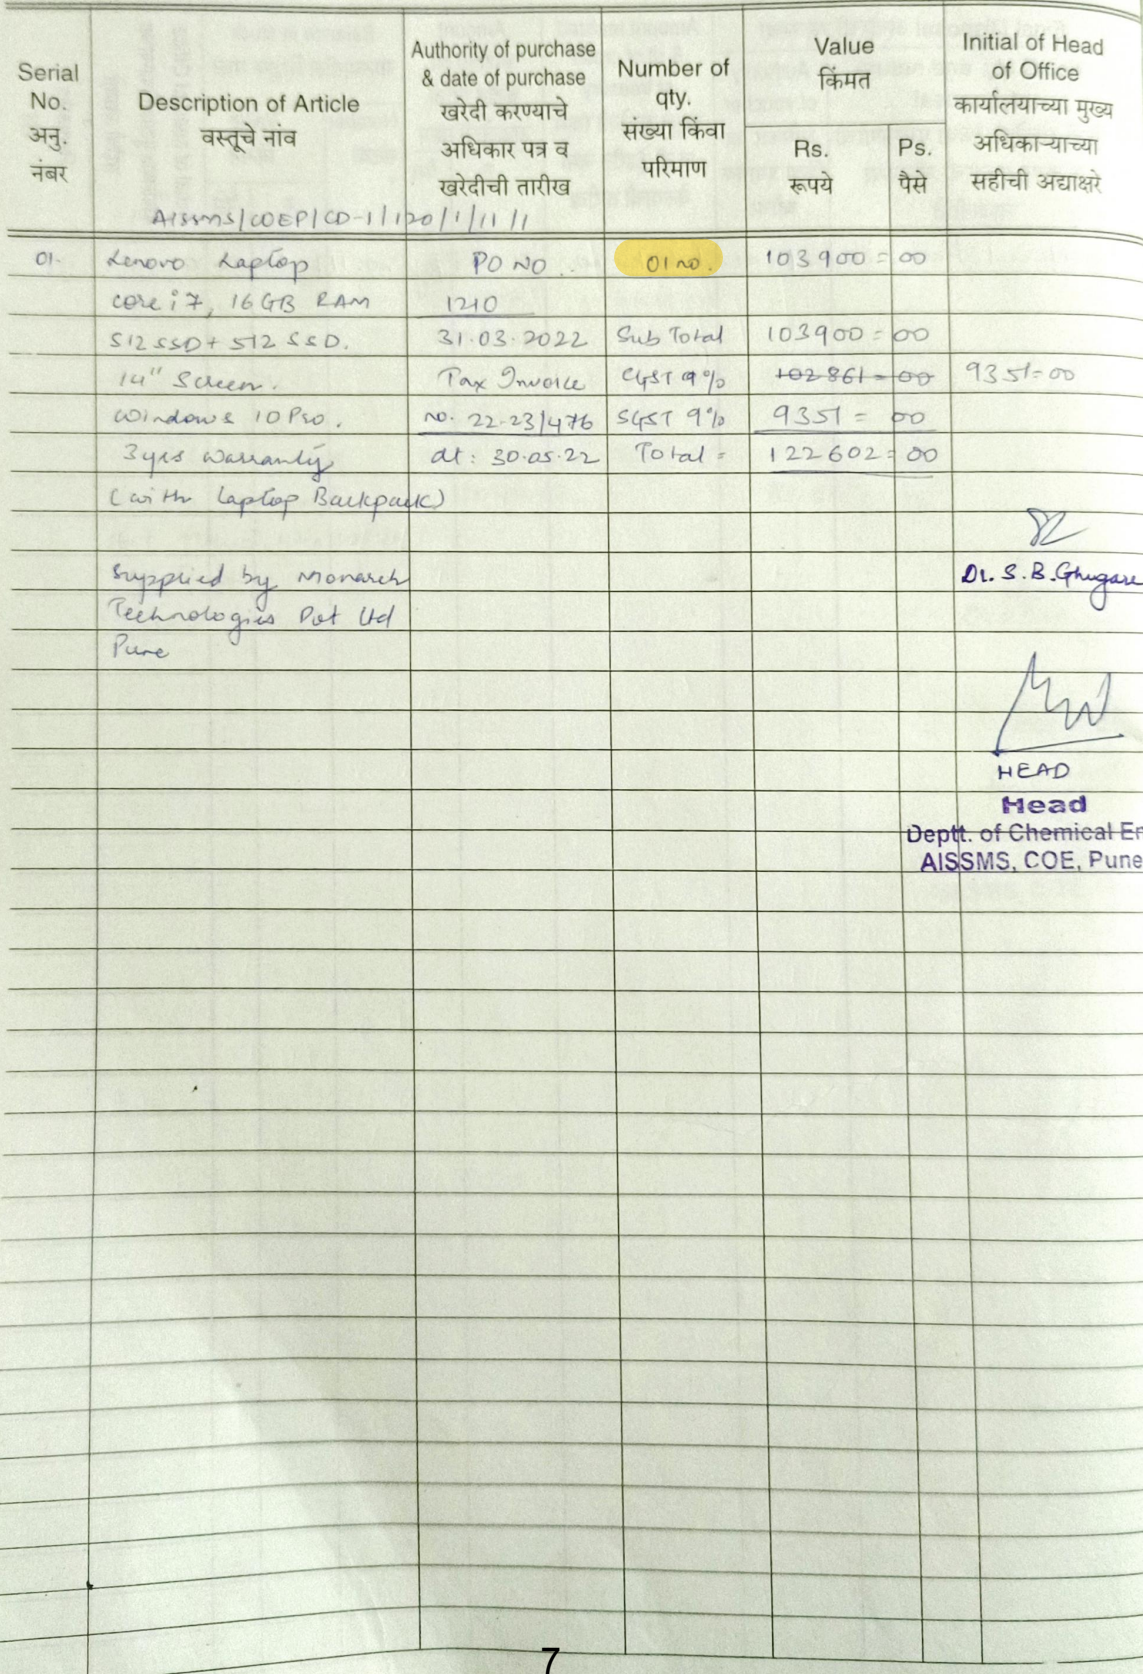 Serial No. अनु. नंबर
Description of Article वस्तूचे नांव
Authority of purchase & date of purchase खरेदी करण्याचे अधिकार पत्र व खरेदीची तारीख
Number of qty. संख्या किंवा परिमाण
Value किंमत
Rs. रूपये
Ps. पैसे
Initial of Head of Office कार्यालयाच्या मुख्य अधिकाऱ्याच्या सहीची अद्याक्षरे
AISSMS/COEP/CD-1/120/1/11/1
01. Lenovo Laptop PO NO. 01 no. 103900=00
core i7, 16GB RAM 1210
512 SSD+ 512 SSD. 31.03.2022 Sub Total 103900=00
14" Screen. Tax Invoice CGST 9% 102861=00 9351=00
Windows 10 Pro. no. 22-23/476 SGST 9% 9351=00
3yrs warranty dt: 30.05.22 Total = 122602=00
(with Laptop Backpack)
Supplied by Monarch Dr. S. B. Ghugare
Technologies Pvt Ltd
Pune
HEAD
Head
Deptt. of Chemical En
AISSMS, COE, Pune
7